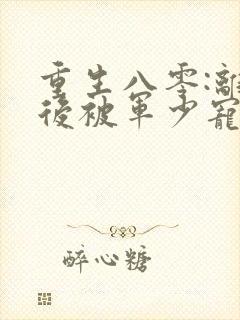 重生八零:離
後被軍少寵
醉心糖